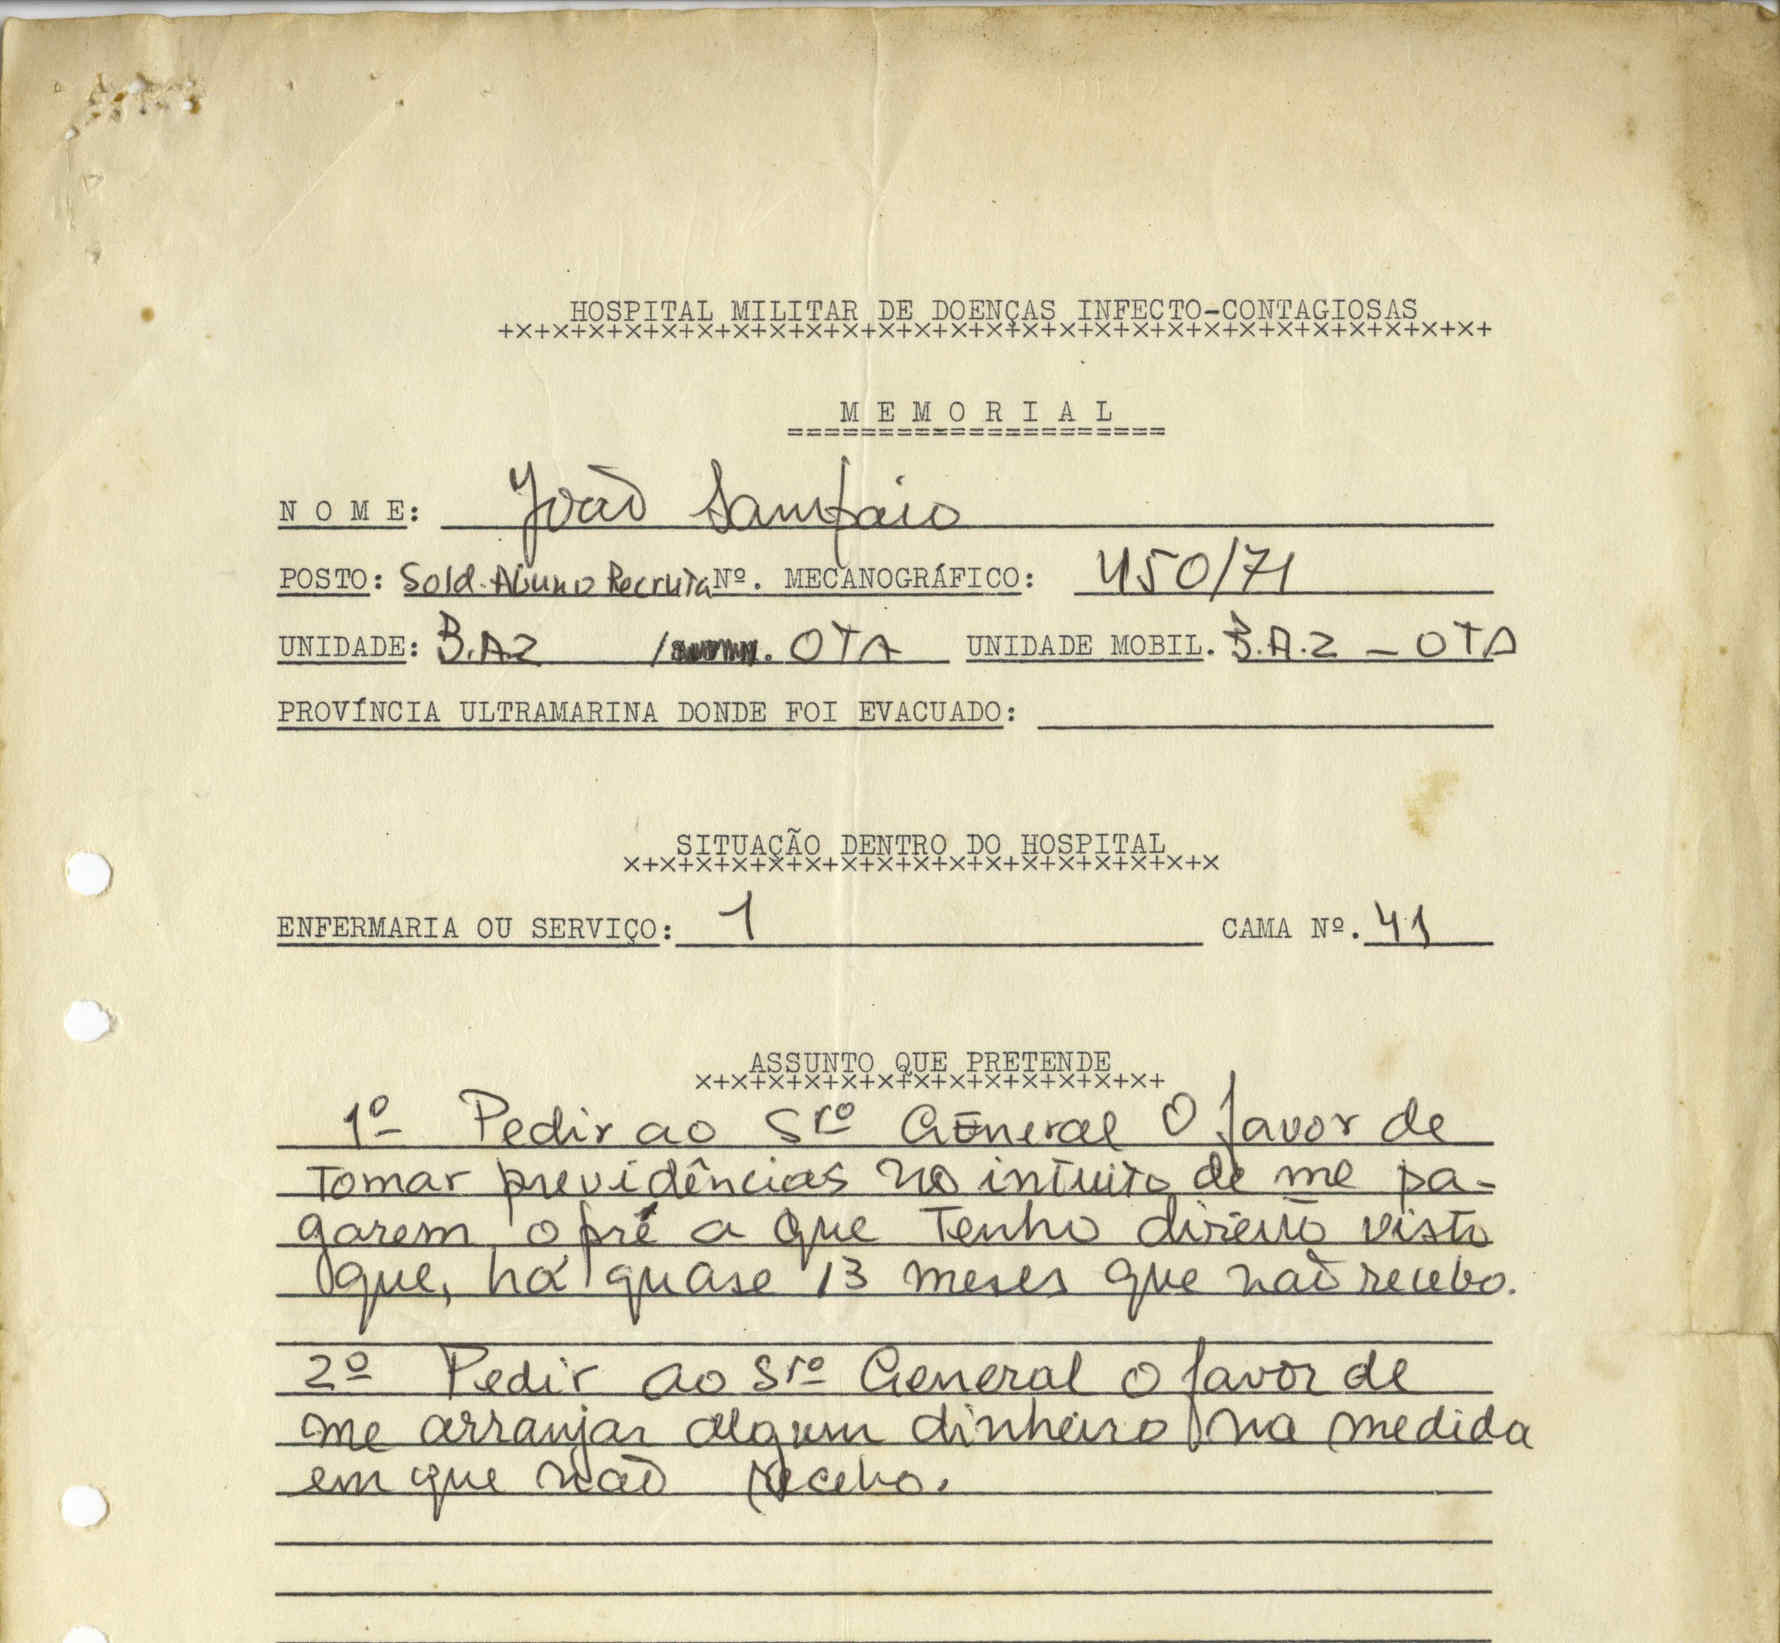 HOSPITAL MILITAR DE DOENÇAS INFECTO-CONTAGIOSAS
+x+x+x+x+x+x+x+x+x+x+x+x+x+x+x+x+x+x+x+x+x+x+x+x+x+x+x+
M E M O R I A L
=====================
N O M E: João Sampaio
POSTO: Sold. Aluno Recruta Nº. MECANOGRÁFICO: 450/71
UNIDADE: B.A2 / OTA UNIDADE MOBIL. B.A.2 - OTA
PROVÍNCIA ULTRAMARINA DONDE FOI EVACUADO:
SITUAÇÃO DENTRO DO HOSPITAL
x+x+x+x+x+x+x+x+x+x+x+x+x+x+x+x+x
ENFERMARIA OU SERVIÇO: 1 CAMA Nº. 41
ASSUNTO QUE PRETENDE
x+x+x+x+x+x+x+x+x+x+x+x+x+
1º Pedir ao Srº General O favor de
Tomar previdências no intuito de me pa-
garem o pré a que Tenho direito visto
que, há quase 13 meses que não recebo.
2º Pedir ao Srº General o favor de
me arranjar algum dinheiro na medida
em que não recebo.